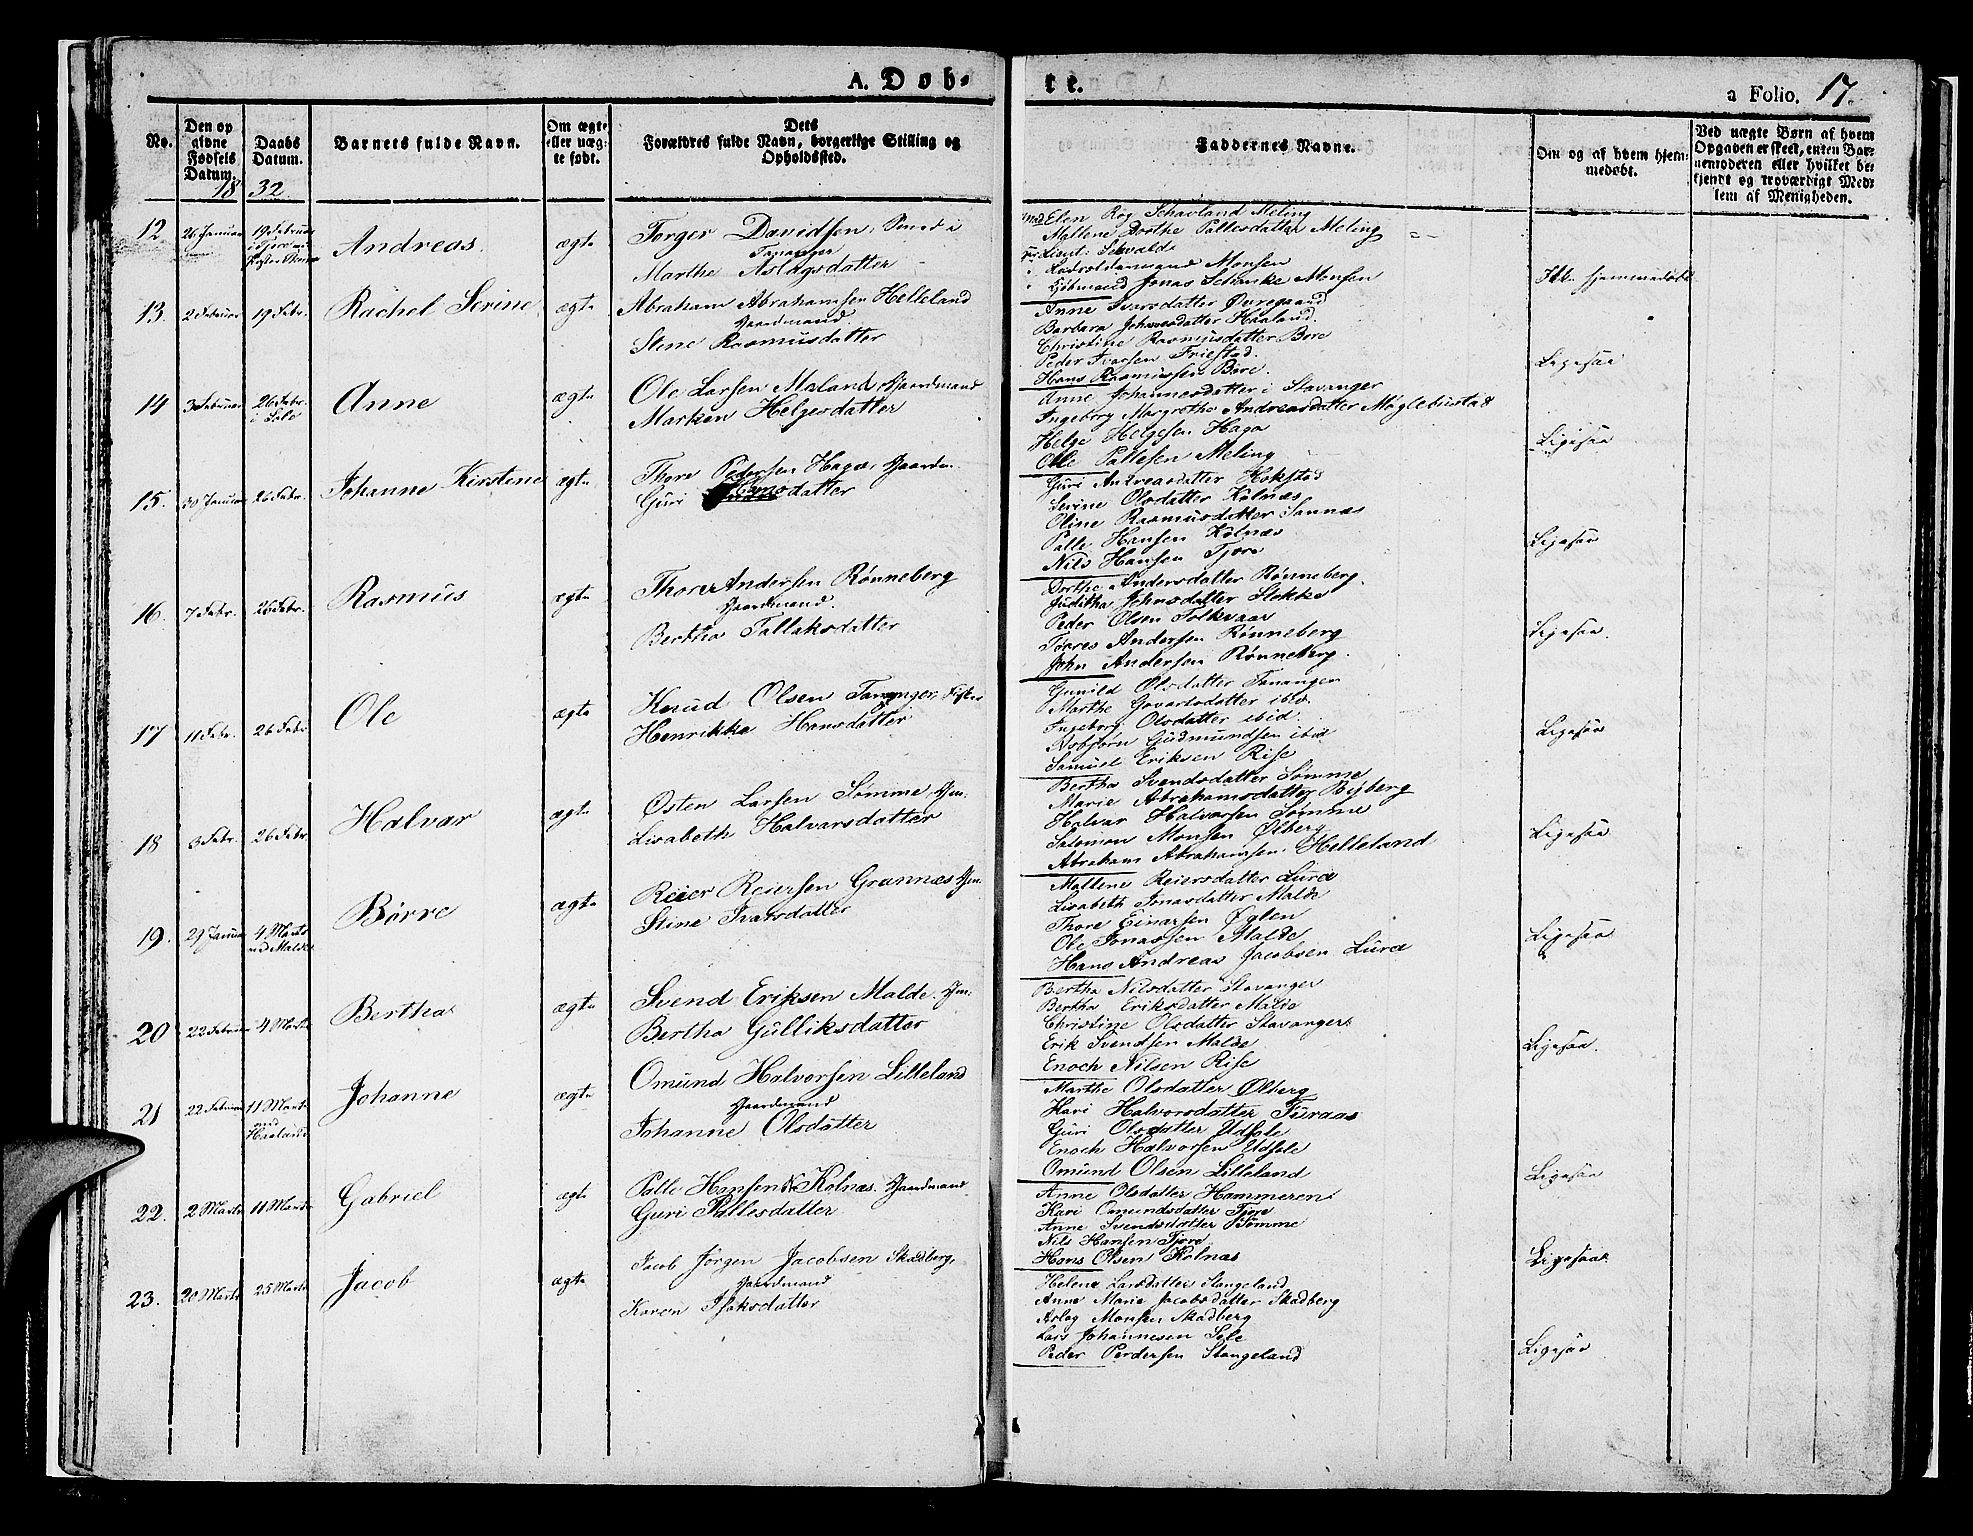 A. Døb-
te.
a Folio. 17.
No.
Den op
givne
Fødsels
Datum.
Daabs
Datum.
Barnets fulde Navn.
Om ægte
eller uæg-
te født.
Dets
Forældres fulde Navn, borgerlige Stilling og
Opholdssted.
Faddernes Navne.
Om og af hvem hjem-
medøbt.
Ved uægte Børn af hvem
Opgaven er skeet, enten Bar-
nemoderen eller hvilket be-
kjendt og troværdigt Med-
lem af Menigheden.
18 32
12
26 Januar
19 Februar
Andreas.
ægte
Torger Davidsen, Smed i
Tananger
Marthe Aslagsdatter
Elen Rog Schavland Meling
Mallene Dorthe Pallesdatter Meling
Lieut: Sehvalde
Monsen
Kjøbmand Jonas Schanke Monsen
Ikke hjemmedøbt
13.
2 Februar
19 Febr.
Rachel Serine
ægte
Abraham Abrahamsen Helleland
Gaardmand.
Stine Rasmusdatter
Anne Ivarsdatter Øvregaard
Barbara Johnesdatter Haaland.
Christine Rasmusdatter Bore
Peder Ivarsen Friestad.
Hans Rasmussen Bore.
Ligesaa
14
3 Februar
26 Febr.
i Sole
Anne
ægte
Ole Larsen Maland, Gaardmand
Marken Helgesdatter
Anne Johannesdatter i Stavanger
Ingeborg Margrethe Andreasdatter Møglebustad
Helge Helgesen Haga
Ole Pallesen Meling
Ligesaa
15.
30 Januar
26 Febr.
Johanne Kirstine
ægte
Thore Pedersen Haga, Gaardm.
Guri Hansdatter
Guri Andreasdatter Hokstad
Serine Olsdatter Kolnæs
Oline Rasmusdatter Sannæs
Palle Hansen Kolnæs
Nils Hansen Tjore
Ligesaa
16.
7 Febr.
26 Febr.
Rasmus
ægte
Thore Andersen Rønneberg
Gaardmand.
Bertha Tallaksdatter
Dorthe Andersdatter Rønneberg.
Juditha Johnsdatter Stokke
Peder Olsen Folkvaar
Torres Andersen Rønneberg
John Andersen Rønneberg.
Ligesaa.
17
11 Febr.
26 Febr
Ole
ægte
Knud Olsen Tananger, Fisker
Henrikke Hansdatter
Gunild Olsdatter Tananger
Marthe Govartsdatter ibid.
Ingeborg Olsdatter ibid.
Asbjørn Gudmundsen ibid
Samuel Eriksen Rise
Ligesaa
18
3 Febr.
26 Febr
Halvar
ægte
Østen Larsen Sømme, Gm.
Lisabeth Halvarsdatter
Bertha Svendsdatter Sømme
Marie Abrahamsdatter Byberg
Halvar Halvorsen Sømme
Salomon Monsen Ølberg
Abraham Abrahamsen Helleland
Ligesaa
19.
29 Januar
4 Marts
ved Malde
Børre
ægte
Reier Reiersen Grannæs Gm.
Stine Ivarsdatter
Mallene Reiersdatter Lura
Lisabeth Jonasdatter Malde
Thore Einarsen Øglen
Ole Jonassen Malde
Hans Andreas Jacobsen Lura
Ligesaa
20
22 Februar
4 Marts
Bertha
ægte
Svend Eriksen Malde. Gm.
Bertha Gulliksdatter
Bertha Nilsdatter Stavanger
Bertha Eriksdatter Malde
Christine Olsdatter Stavanger.
Erik Svendsen Malde
Enoch Nilsen Rise
Ligesaa.
21
22 Februar
11 Marts
ved
Haaland
Johanne
ægte
Omund Halvorsen Lilleland
Gaardmand
Johanne Olsdatter
Marthe Olsdatter Ølberg
Kari Halvorsdatter Furaas
Guri Olsdatter Udsole
Enoch Halvorsen Udsole
Omund Olsen Lilleland
Ligesaa
22.
2 Marts
11 Marts
Gabriel
ægte
Palle Hansen Kolnæs. Gaardmand
Guri Pallesdatter
Anne Olsdatter Hammeren
Kari Omundsdatter Tjore
Anne Svendsdatter Sømme
Nils Hansen Tjore
Hans Olsen Kolnæs
Ligesaa
23.
20 Marts
25 Marts
Jacob
ægte
Jacob Jørgen Jacobsen Skadberg,
Gaardmand
Karen Isaksdatter
Helene Larsdatter Stangeland
Anne Marie Jacobsdatter Skadberg
Aslag Monsen Skadberg
Lars Johannesen Sole
Peder Pedersen Stangeland
Ligesaa